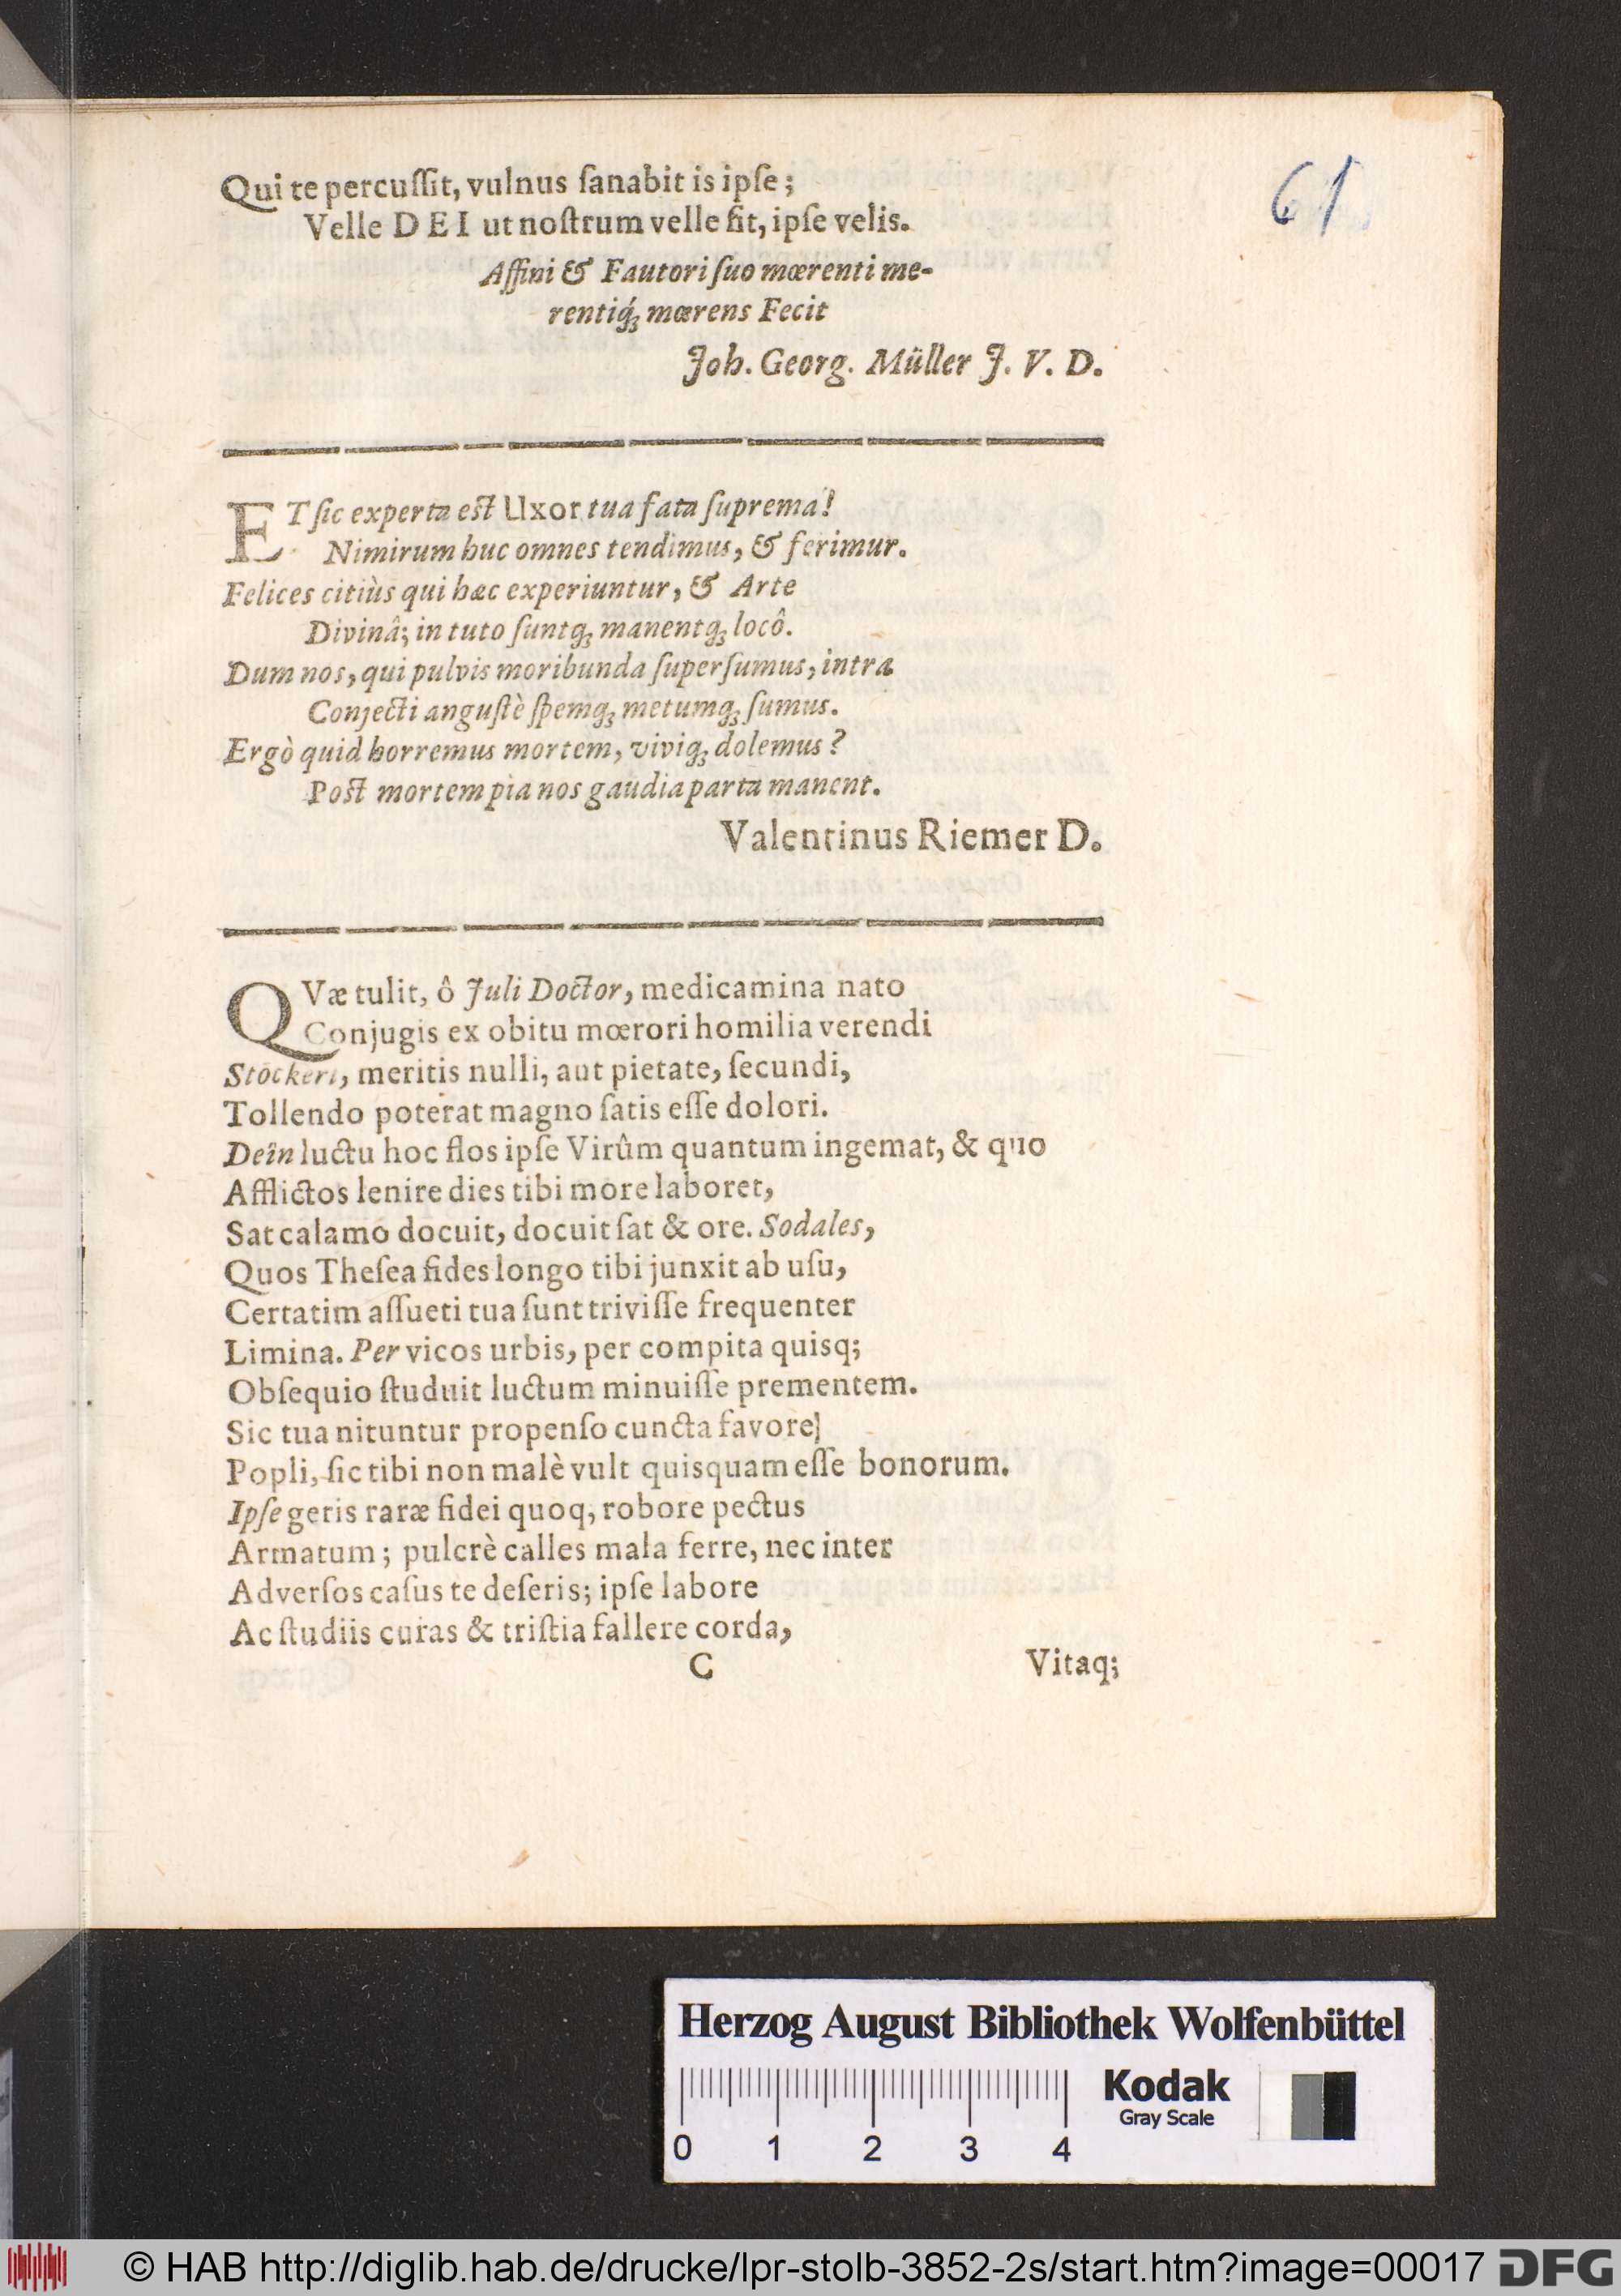 61
Qui te percuſſit, vulnus ſanabit is ipſe;
Velle DEI ut noſtrum velle ſit, ipſe velis.
Affini & Fautori ſuo mœrenti me-
rentiq́ꝫ mœrens Fecit
Joh. Georg. Müller J. V. D.
ET ſic experta eſt Uxor tua fata ſuprema!
Nimirum huc omnes tendimus, & ferimur.
Felices citiùs qui hæc experiuntur, & Arte
Divinâ; in tuto ſuntqꝫ manentqꝫ locô.
Dum nos, qui pulvis moribunda ſuperſumus, intra
Conjecti anguſtè ſpemqꝫ metumqꝫ ſumus.
Ergò quid horremus mortem, viviqꝫ dolemus?
Poſt mortem pia nos gaudia parta manent.
Valentinus Riemer D.
QVæ tulit, ô Juli Doctor, medicamina nato
Conjugis ex obitu mœrori homilia verendi
Stöckeri, meritis nulli, aut pietate, ſecundi,
Tollendo poterat magno ſatis eſſe dolori.
Deîn luctu hoc flos ipſe Virûm quantum ingemat, & quo
Afflictos lenire dies tibi more laboret,
Sat calamo docuit, docuit ſat & ore. Sodales,
Quos Theſea fides longo tibi junxit ab uſu,
Certatim aſſueti tua ſunt triviſſe frequenter
Limina. Per vicos urbis, per compita quisq;
Obſequio ſtuduit luctum minuiſſe prementem.
Sic tua nituntur propenſo cuncta favore
Popli, ſic tibi non malè vult quisquam eſſe bonorum.
Ipſe geris raræ fidei quoq, robore pectus
Armatum; pulcrè calles mala ferre, nec inter
Adverſos caſus te deſeris; ipſe labore
Ac ſtudiis curas & triſtia fallere corda,
C Vitaq;
Herzog August Bibliothek Wolfenbüttel
0 1 2 3 4
Kodak
Gray Scale
© HAB http://diglib.hab.de/drucke/lpr-stolb-3852-2s/start.htm?image=00017
DFG